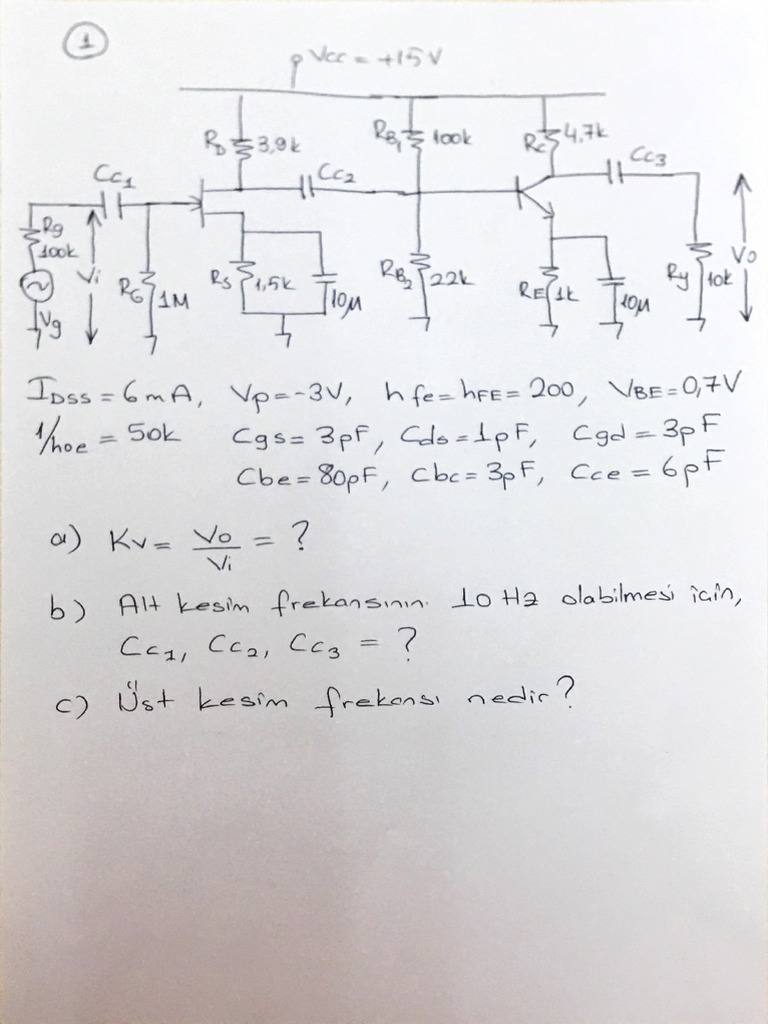 1
Vcc = +15V
RD 3,9k RB1 100k RC 4,7k
Cc1 Cc2 Cc3
Rg 100k Vi RG 1M RS 1,5k 10µ RB2 22k RE 1k 10µ Ry 10k Vo
Vg
IDSS = 6mA, Vp=-3V, hfe=hFE=200, VBE=0,7V
1/hoe = 50k Cgs=3pF, Cds=1pF, Cgd=3pF
Cbe=80pF, Cbc=3pF, Cce=6pF
a) Kv= Vo/Vi = ?
b) Alt kesim frekansının 10 Hz olabilmesi için,
Cc1, Cc2, Cc3 = ?
c) Üst kesim frekansı nedir?